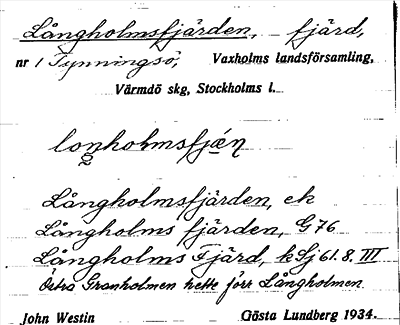 Långholmsfjärden, fjärd,
nr 1 Tynningsö, Vaxholms landsförsamling,
Värmdö skg, Stockholms l.
loŋholmsfjæ̨ṇ
Långholmsfjärden, ek
Långholms fjärden, G 76
Långholms Fjärd, k Sj 61. 8. III
Östra Granholmen hette förr Långholmen.
John Westin Gösta Lundberg 1934.